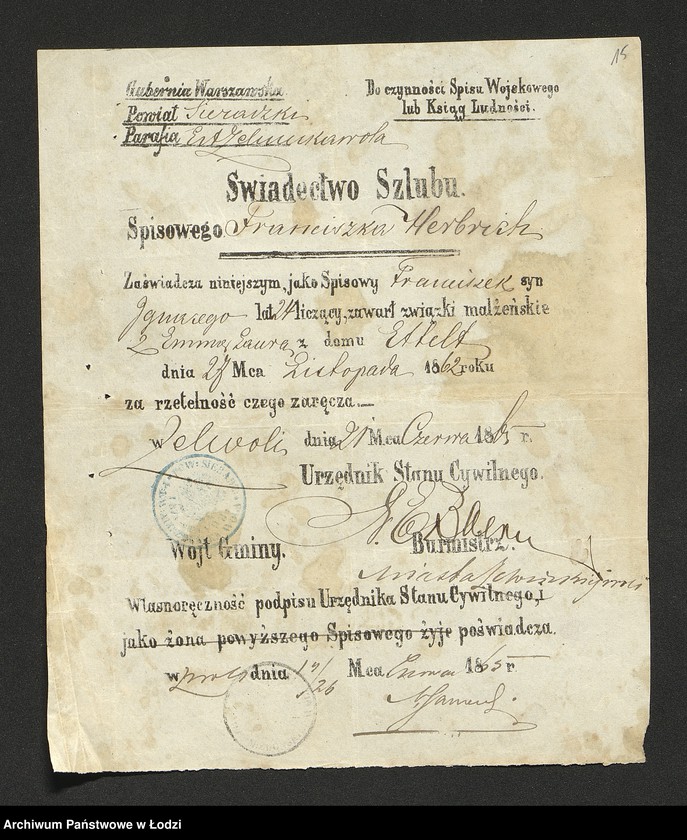 15
Gubernia Warszawska
Do czynności Spisu Wojskowego
Powiat Sieradzki
lub Ksiąg Ludności.
Parafia
Swiadectwo Szlubu.
Spisowego Franciszka Herbrich
Zaświadcza niniejszym, jako Spisowy Franciszek syn
Ignacego lat 24 liczący, zawarł związki małżeńskie
z Emmą Laurą z domu Ettelt
dnia 27 Mca Listopada 1862 roku
za rzetelność czego zaręcza.
w Zdwoli dnia Mca Czerwca 186 r.
Urzędnik Stanu Cywilnego.
Wójt Gminy. Burmistrz.
Miasta
Własnoręczność podpisu Urzędnika Stanu Cywilnego, i
jako żona powyższego Spisowego żyje poświadcza.
w dnia 14/26 Mca 1865 r
Archiwum Państwowe w Łodzi